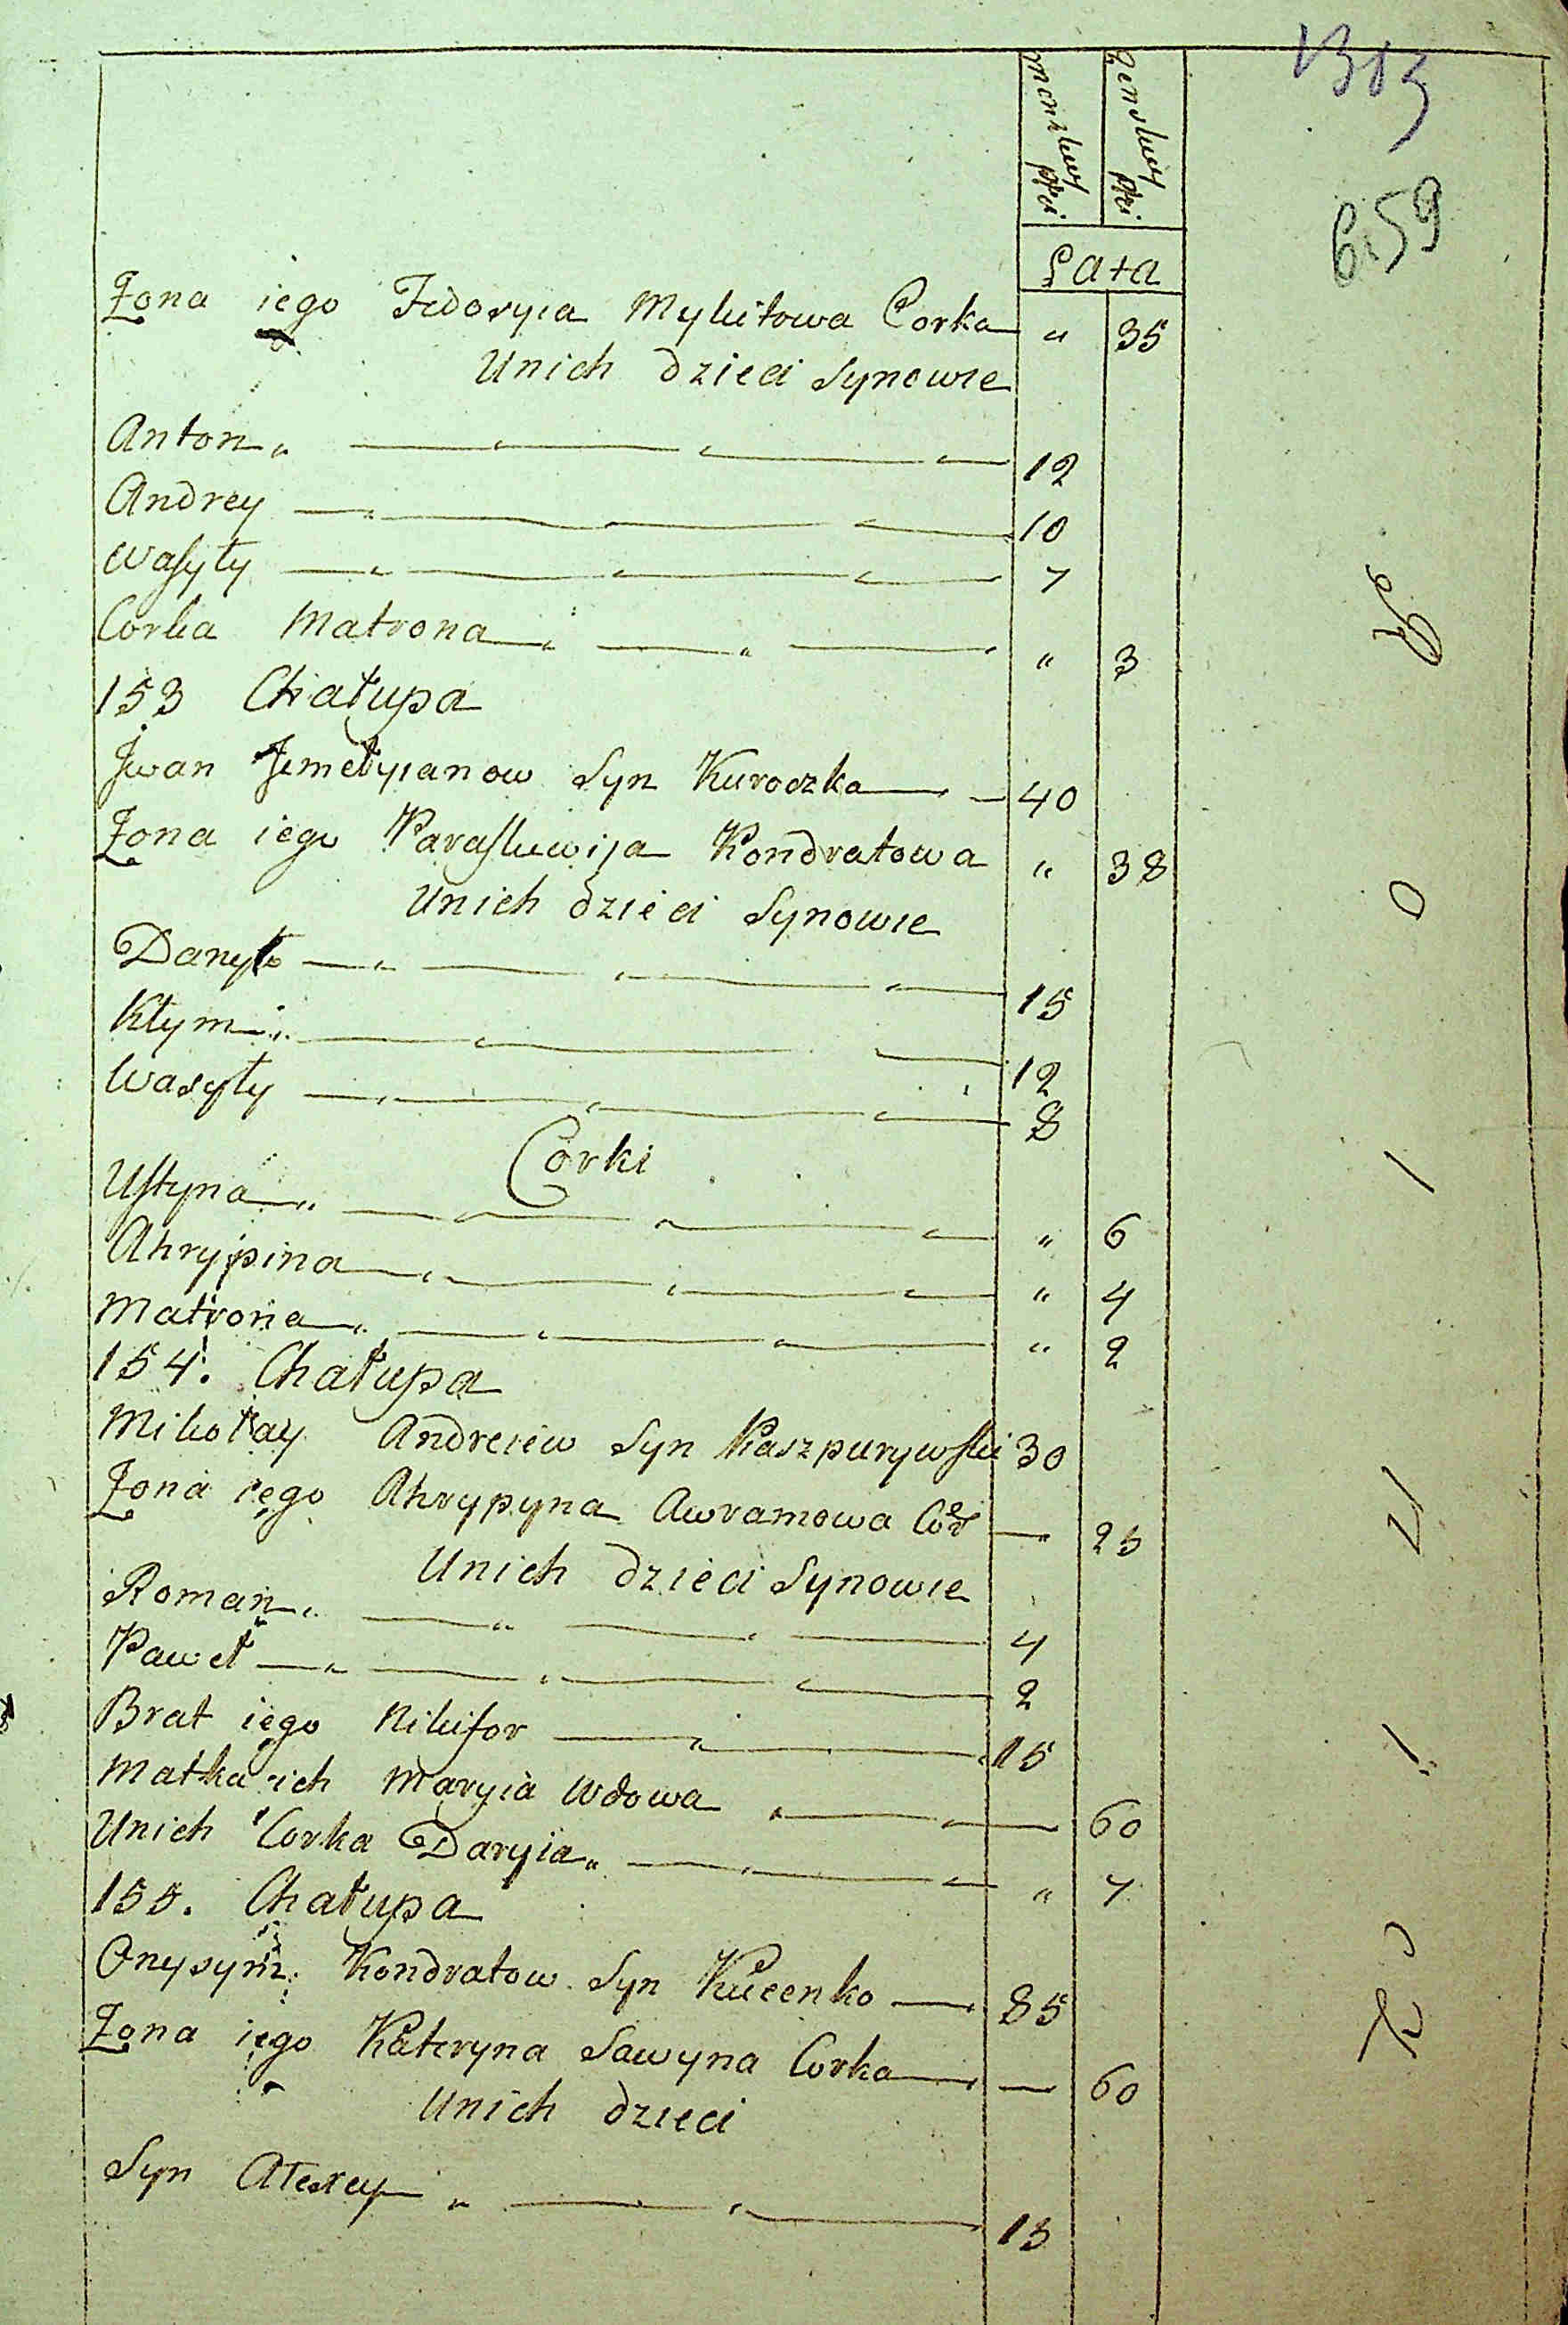 męzkiey płci
żenskiey płci
1313
659
Lata
Żona iego Fedoryia Mykitowa Corka " 35
Unich dzieci Synowie
Anton 12
Andrey 10
Wasyły 7
Corka Matrona " 3
153 Chałupa
Jwan Jemełyianow Syn Kuroczka 40
Żona iego Paraskiewija Kondratowa " 38
Unich dzieci Synowie
Danyło 15
Kłym 12
Wasyły 8
Corki
Ustyna " 6
Ahrypina " 4
Matrona " 2
154. Chałupa
Mikołay Andreiew Syn Kaszpurywski 30
Żona iego Ahrypyna Awramowa Cor — 25
Unich dzieci Synowie
Roman 4
Paweł 2
Brat iego Nikifor 15
Matka ich Maryia Wdowa — 60
Unich Corka Daryia " 7
155. Chałupa
Onysym Kondratow Syn Kucenko 85
Żona iego Kateryna Sawyna Corka — 60
Unich dzieci
Syn Alexey 13